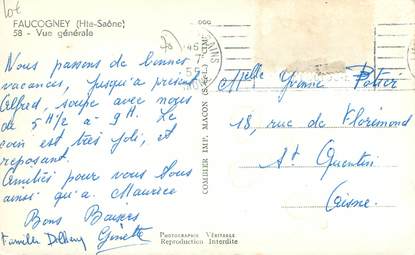 Lot
FAUCOGNEY (Hte-Saône)
58 - Vue générale
Nous passons de bonnes
vacances, jusqu'à présent
Alfred, soupe avec nous
de 5 H 1/2 à 9H. Le
coin est très joli, et
reposant.
Amitiés pour vous tous
ainsi qu'a Maurice
Bons Baisers
Famille Delhay Ginette
COMBIER IMP. MACON
Melle Yvonne Potier
18, rue de Florimond
St Quentin
Aisne.
PHOTOGRAPHIE VÉRITABLE
Reproduction Interdite